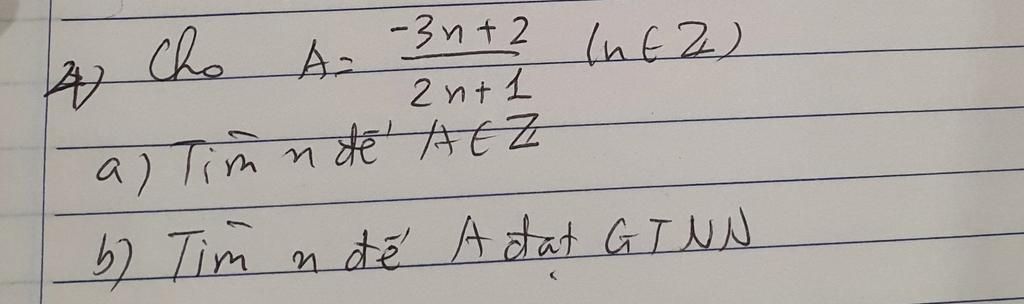 4) Cho A = \frac{-3n+2}{2n+1} (n ∈ Z)
a) Tìm n để A ∈ Z
b) Tìm n để A đạt GTNN